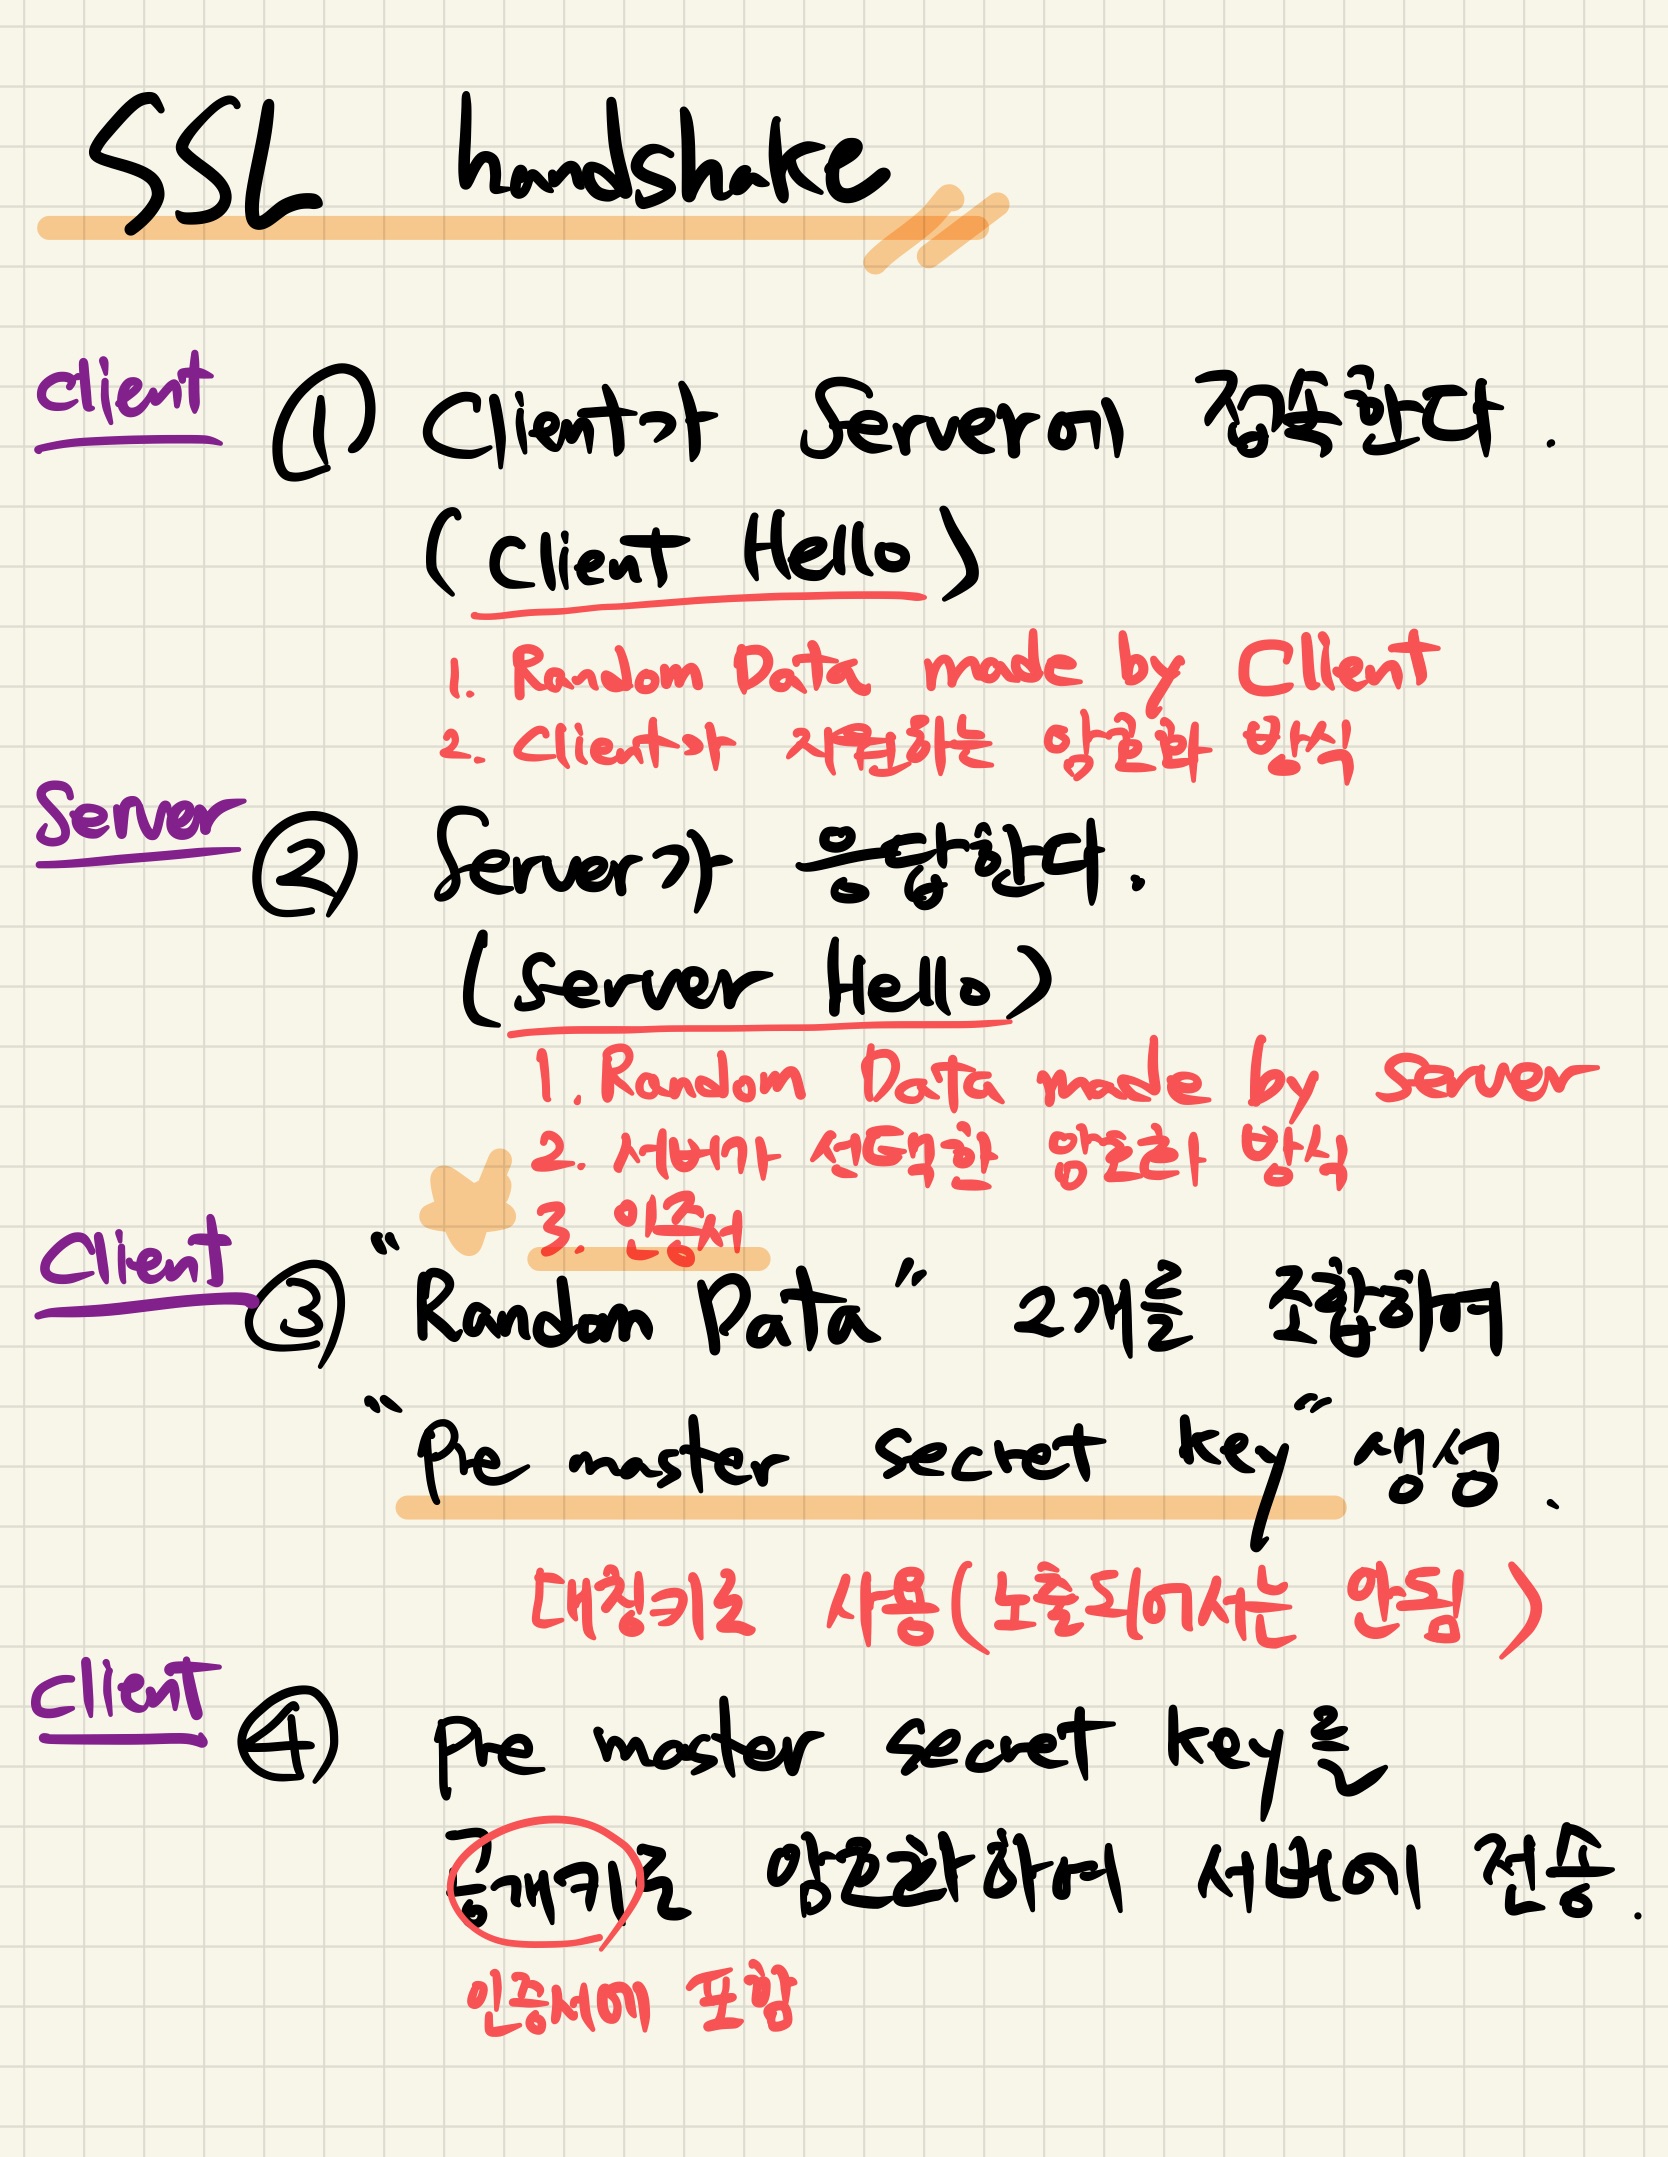 SSL handshake
Client ① Client가 Server에 접속한다.
(Client Hello)
1. Random Data made by Client
2. Client가 지원하는 암호화 방식
Server ② Server가 응답한다.
(Server Hello)
1. Random Data made by server
2. 서버가 선택한 암호화 방식
3. 인증서
Client ③ "Random Data" 2개를 조합하여
"Pre master secret key" 생성.
대칭키로 사용(노출되어서는 안됨)
Client ④ Pre master secret key를
공개키로 암호화하여 서버에 전송.
인증서에 포함